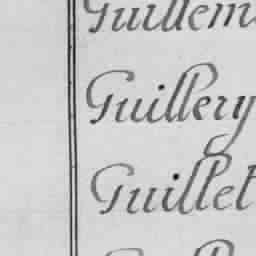 Guillem
Guillery
Guillet